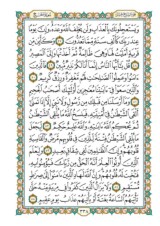 وَيَسْتَعْجِلُونَكَ بِالْعَذَابِ وَلَن يُخْلِفَ اللَّهُ وَعْدَهُ وَإِنَّ يَوْمًا
عِندَ رَبِّكَ كَأَلْفِ سَنَةٍ مِّمَّا تَعُدُّونَ وَكَأَيِّن مِّن
قَرْيَةٍ أَمْلَيْتُ لَهَا وَهِيَ ظَالِمَةٌ ثُمَّ أَخَذْتُهَا وَإِلَيَّ الْمَصِيرُ
قُلْ يَا أَيُّهَا النَّاسُ إِنَّمَا أَنَا لَكُمْ نَذِيرٌ مُّبِينٌ فَالَّذِينَ
آمَنُوا وَعَمِلُوا الصَّالِحَاتِ لَهُم مَّغْفِرَةٌ وَرِزْقٌ كَرِيمٌ
وَالَّذِينَ سَعَوْا فِي آيَاتِنَا مُعَاجِزِينَ أُولَٰئِكَ أَصْحَابُ الْجَحِيمِ
وَمَا أَرْسَلْنَا مِن قَبْلِكَ مِن رَّسُولٍ وَلَا نَبِيٍّ إِلَّا إِذَا تَمَنَّىٰ
أَلْقَى الشَّيْطَانُ فِي أُمْنِيَّتِهِ فَيَنسَخُ اللَّهُ مَا يُلْقِي الشَّيْطَانُ
ثُمَّ يُحْكِمُ اللَّهُ آيَاتِهِ وَاللَّهُ عَلِيمٌ حَكِيمٌ لِّيَجْعَلَ
مَا يُلْقِي الشَّيْطَانُ فِتْنَةً لِّلَّذِينَ فِي قُلُوبِهِم مَّرَضٌ
وَالْقَاسِيَةِ قُلُوبُهُمْ وَإِنَّ الظَّالِمِينَ لَفِي شِقَاقٍ بَعِيدٍ
وَلِيَعْلَمَ الَّذِينَ أُوتُوا الْعِلْمَ أَنَّهُ الْحَقُّ مِن رَّبِّكَ فَيُؤْمِنُوا بِهِ
فَتُخْبِتَ لَهُ قُلُوبُهُمْ وَإِنَّ اللَّهَ لَهَادِ الَّذِينَ آمَنُوا إِلَىٰ صِرَاطٍ
مُّسْتَقِيمٍ وَلَا يَزَالُ الَّذِينَ كَفَرُوا فِي مِرْيَةٍ مِّنْهُ حَتَّىٰ
تَأْتِيَهُمُ السَّاعَةُ بَغْتَةً أَوْ يَأْتِيَهُمْ عَذَابُ يَوْمٍ عَقِيمٍ
٣٣٨